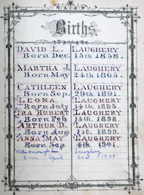 Births.
David L. Laughery
Born Dec. 15th 1858.
Martha J. Laughery
Born May 24th 1865.
Cathleen Laughery
Born Sep. 29th 1891.
Leona Laughery
Born July
Ira Hubert Laughery
Born Feb.
Arthur D. Laughery
Born Aug. 1st
Anna May Laughery
Born Sep. 4th 1901.
Laughery
Born April